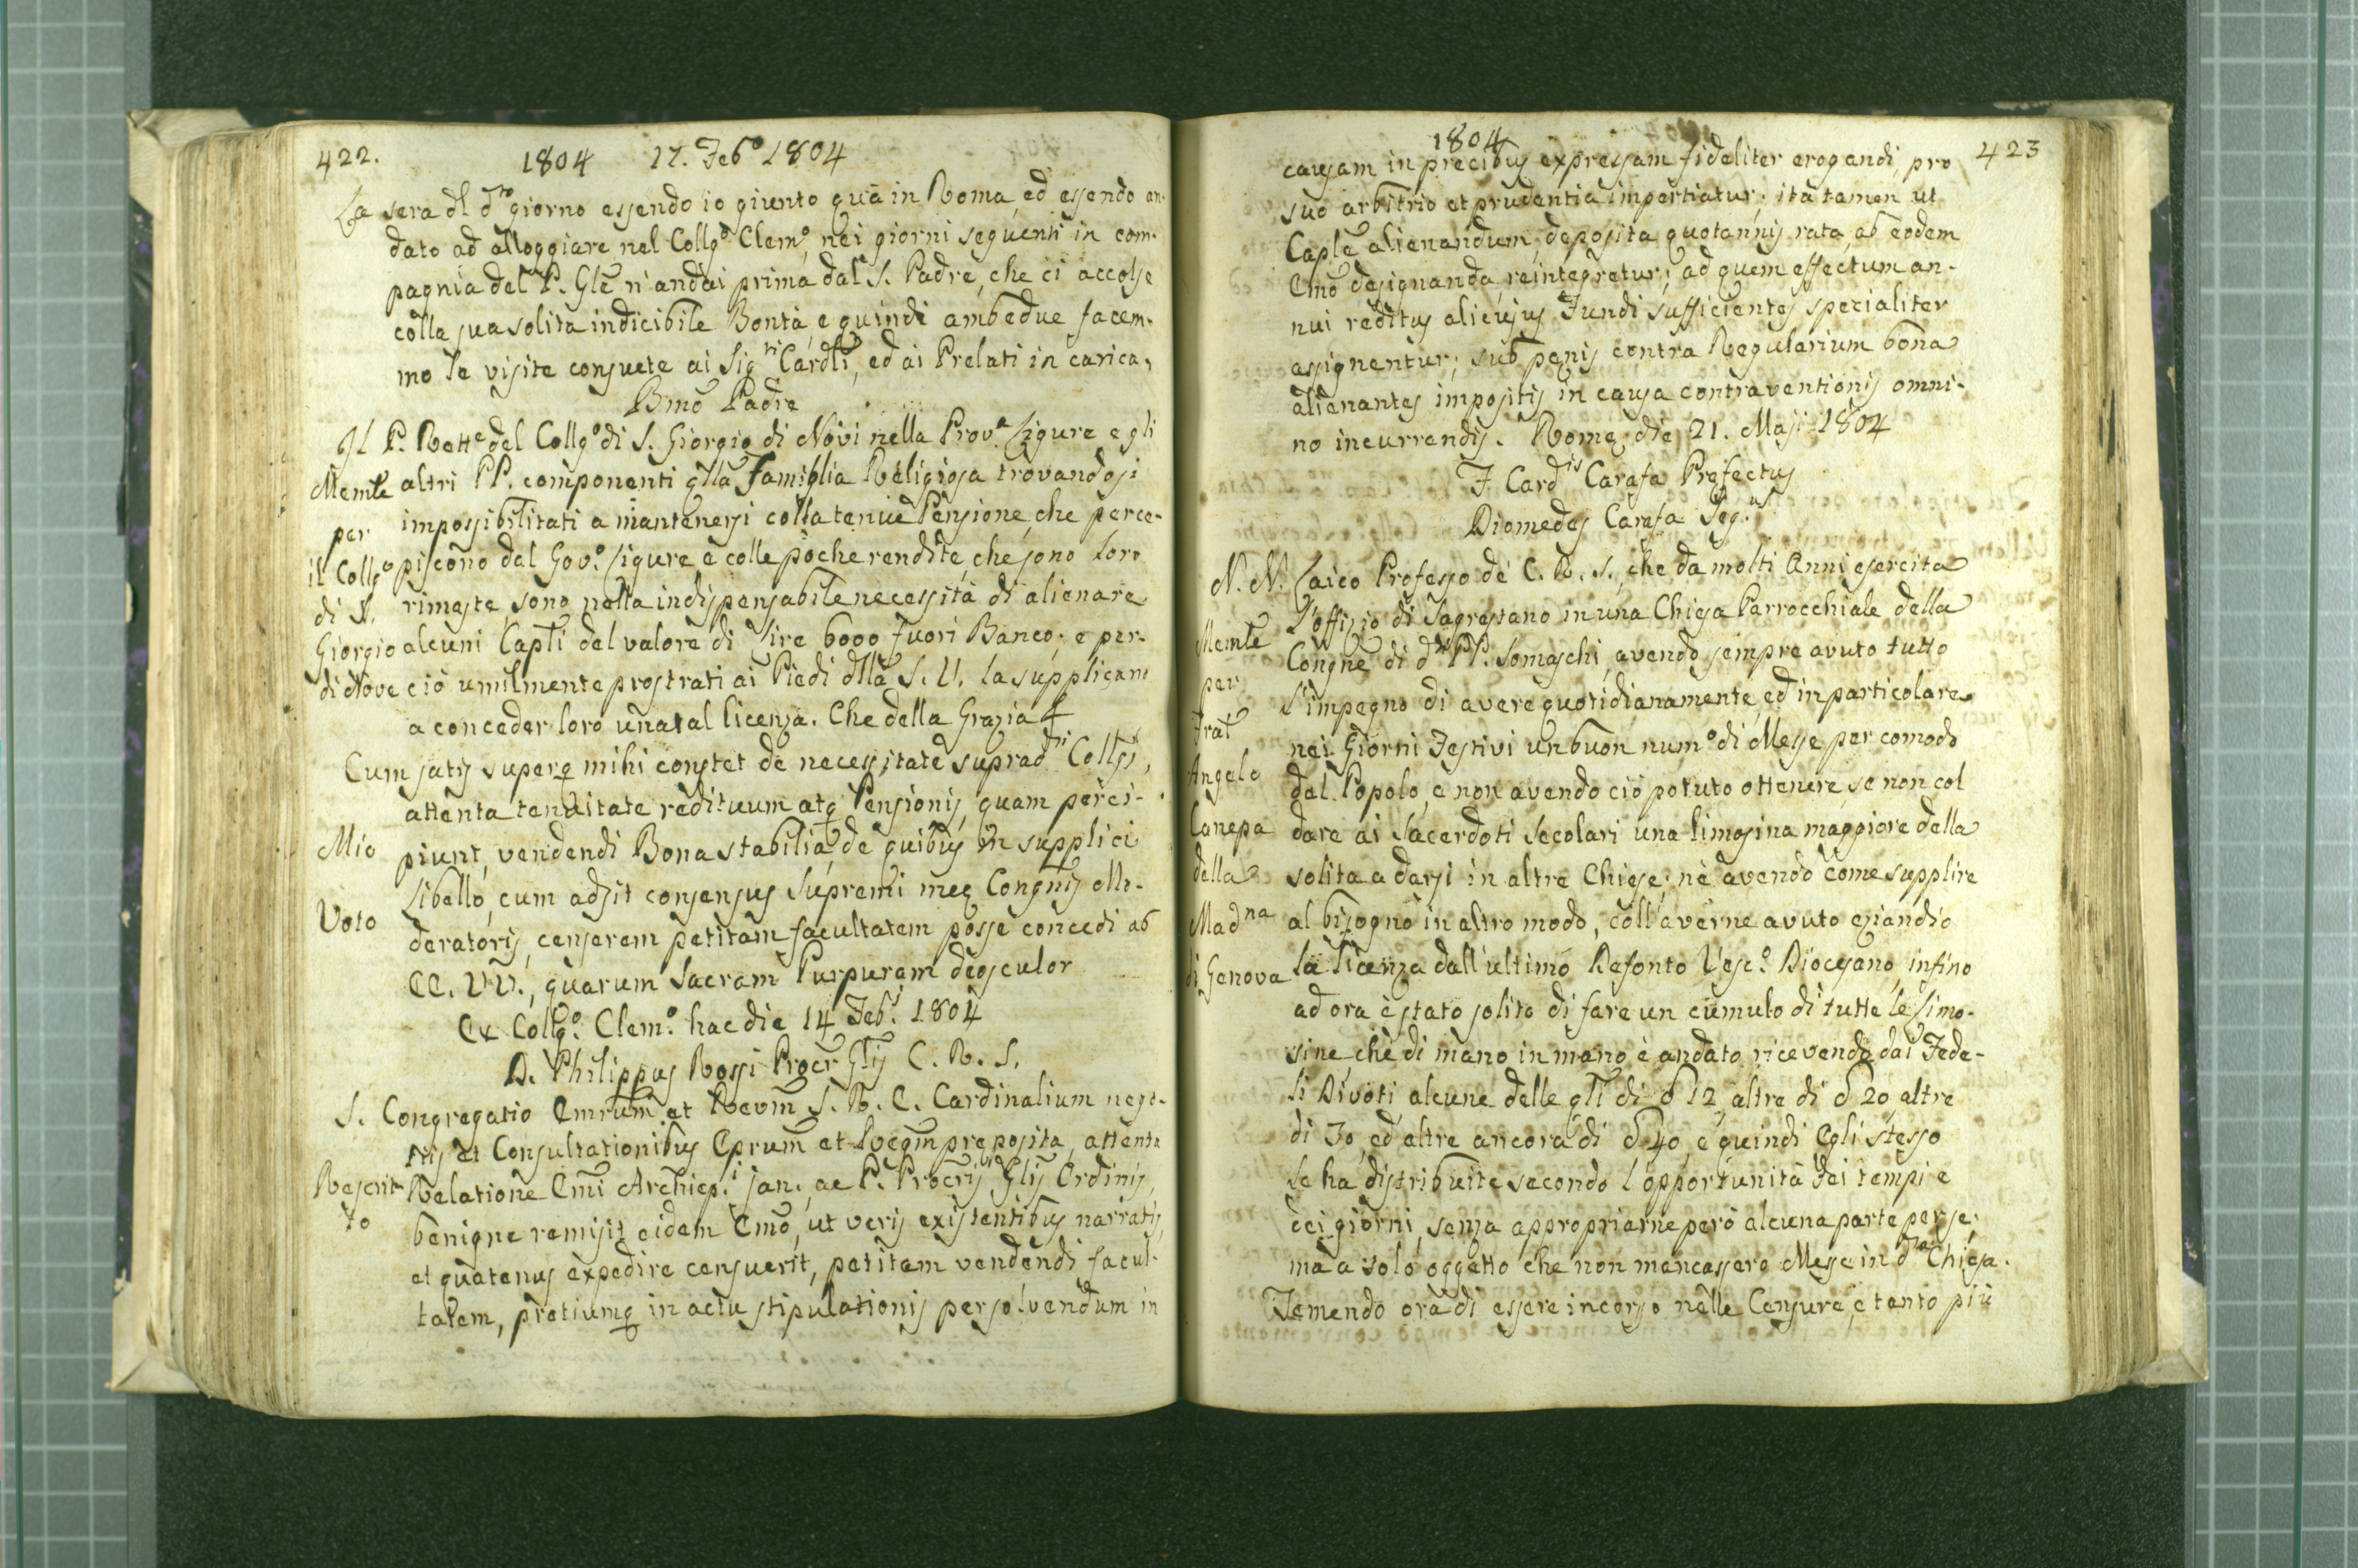 422.
1804 17. Feb.o 1804
La sera dl d.to giorno essendo io giunto quà in Roma, ed essendo an-
dato ad alloggiare nel Collg.o Clem.o, nei giorni seguenti in com-
pagnia del P. Gle n'andai prima dal S. Padre, che ci accolse
colla sua solita indicibile Bontà, e quindi ambedue facem-
mo le visite consuete ai Sig.ri Cardli, ed ai Prelati in carica.
Bmo Padre
Il P. Rett.e del Collg.o di S. Giorgio di Novi nella Prov.a Ligure e gli
Memle altri PP. componenti qlla Famiglia Religiosa trovandosi
per impossibilitati a mantenersi colla tenue Pensione, che perce-
il Collg.o piscono dal Gov.o Ligure e colle poche rendite, che sono loro
di S. rimaste, sono nella indispensabile necessità di alienare
Giorgio alcuni Capli del valore di Lire 6000 fuori Banco; e per-
di Nove ciò umilmente prostrati ai Piedi dlla S. V. la supplicano
a conceder loro una tal licenza. Che della Grazia &
Cum satis superq mihi constet de necessitate suprad.ti Collgi,
attenta tenuitate redituum atq Pensionis, quam perci-
Mio piunt, vendendi Bona stabilia, de quibus in supplici
Libello, cum adsit consensus Supremi meæ Congnis Mo-
Voto deratoris, censerem petitam facultatem posse concedi ab
EE. VV., quarum Sacram Purpuram deosculor
Ex Collg.o Clem.o hac die 14 Feb.i 1804
D. Philippus Rossi Procr Glis C. R. S.
S. Congregatio Emrum et Revm S. R. E. Cardinalium nego-
tiis et Consultationibus Eprum et Regm præposita, attenta
Rescrit- Relatione Emi Archiep.i Jan. ac P. Procris Glis Ordinis,
to benigne remisit eidem Emo, ut veris existentibus narratis,
et quatenus expedire censuerit, petitam vendendi facul-
tatem, pretiumq in actu stipulationis persolvendum in
1804
423
causam in precibus expressam fideliter erogandi, pro
suo arbitrio et prudentia impertiatur; ita tamen ut
Caple alienandum, deposita quotannis rata, ab eodem
Emo designanda, reintegretur; ad quem effectum an-
nui reditus alicujus Fundi sufficientes specialiter
assignentur; sub pænis contra Regularium bona
alienantes impositis in causa contraventionis omni-
no incurrendis. Romæ die 21. Maji 1804
F. Card.is Carafa Prefectus
Diomedes Carafa Seg.us
N. N. Laico Professo de' C. R. S., che da molti Anni esercita
l'offizio di Sagrestano in una Chiesa Parrocchiale della
Memle Congne di d.ti PP. Somaschi, avendo sempre avuto tutto
per l'impegno di avere quotidianamente, ed in particolare
Frat nei Giorni Festivi un buon num.o di Messe per comodo
Angelo del Popolo, e non avendo ciò potuto ottenere, se non col
Canepa dare ai Sacerdoti Secolari una limosina maggiore della
della solita a darsi in altre Chiese; nè avendo come supplire
Mad.na al bisogno in altro modo, coll'averne avuto eziandio
di Genova la licenza dall'ultimo Defonto Vesc.o Diocesano, infino
ad ora è stato solito di fare un cumulo di tutte le Limo-
sine, che di mano in mano è andato ricevendo dai Fede-
li Divoti alcune delle qli di ₰ 12 altre di ₰ 20 altre
di 30, ed altre ancora di ₰ 40, e quindi Egli stesso
le ha distribuite secondo l'opportunità dei tempi e
dei giorni, senza appropriarne però alcuna parte per se;
ma a solo oggetto che non mancassero Messe in d.ta Chiesa.
Temendo ora di essere incorso nelle Censure, e tanto più